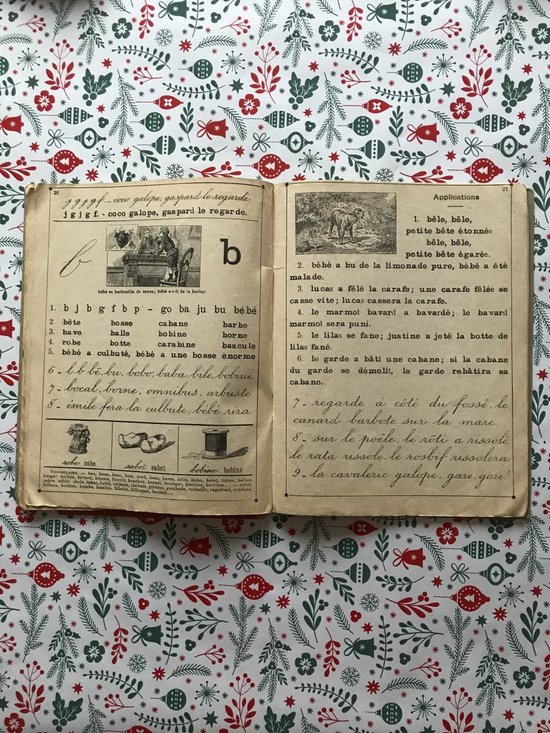 26
j g j g f. - coco galope, gaspard le regarde.
j g j g f. - coco galope, gaspard le regarde.
b
b
bébé se barbouille de savon; bébé a-t-il de la barbe?
1. b j b g f b p - go ba ju bu bé bé
2 bête bosse cabane barbe
3. bave balle bobine borne
4. robe botte carabine bascule
5. bébé a culbuté, bébé a une bosse énorme
6 - b bé bu, bobo, baba, bile, bobine
7 - bocal, borne, omnibus, arbuste
8 - émile fera la culbute, bébé rira
robe robe
sabot sabot
bobine bobine
27
Applications
1. bêle, bêle,
petite bête étonnée
bêle, bêle,
petite bête égarée.
2. bébé a bu de la limonade pure, bébé a été
malade.
3. lucas a fêlé la carafe; une carafe fêlée se
casse vite; lucas cassera la carafe.
4. le marmot bavard a bavardé; le bavard
marmot sera puni.
5. le lilas se fane; justine a jeté la botte de
lilas fané.
6. le garde a bâti une cabane; si la cabane
du garde se démolit, le garde rebâtira sa
cabane.
7 - regarde à côté du fossé, le
canard barbote sur la mare.
8 - sur le poêle, le rôti a rissolé
le rata rissole, le rosbif rissolera
9 - la cavalerie galope, gare, gare!